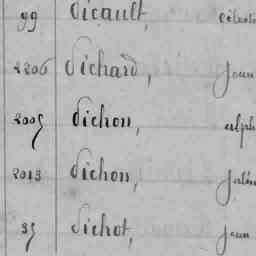 99 Picault, Célesti
2206 Pichard, Jean
2005 Pichon, Alph
2013 Pichon, Julien
35 Pichot, Jean